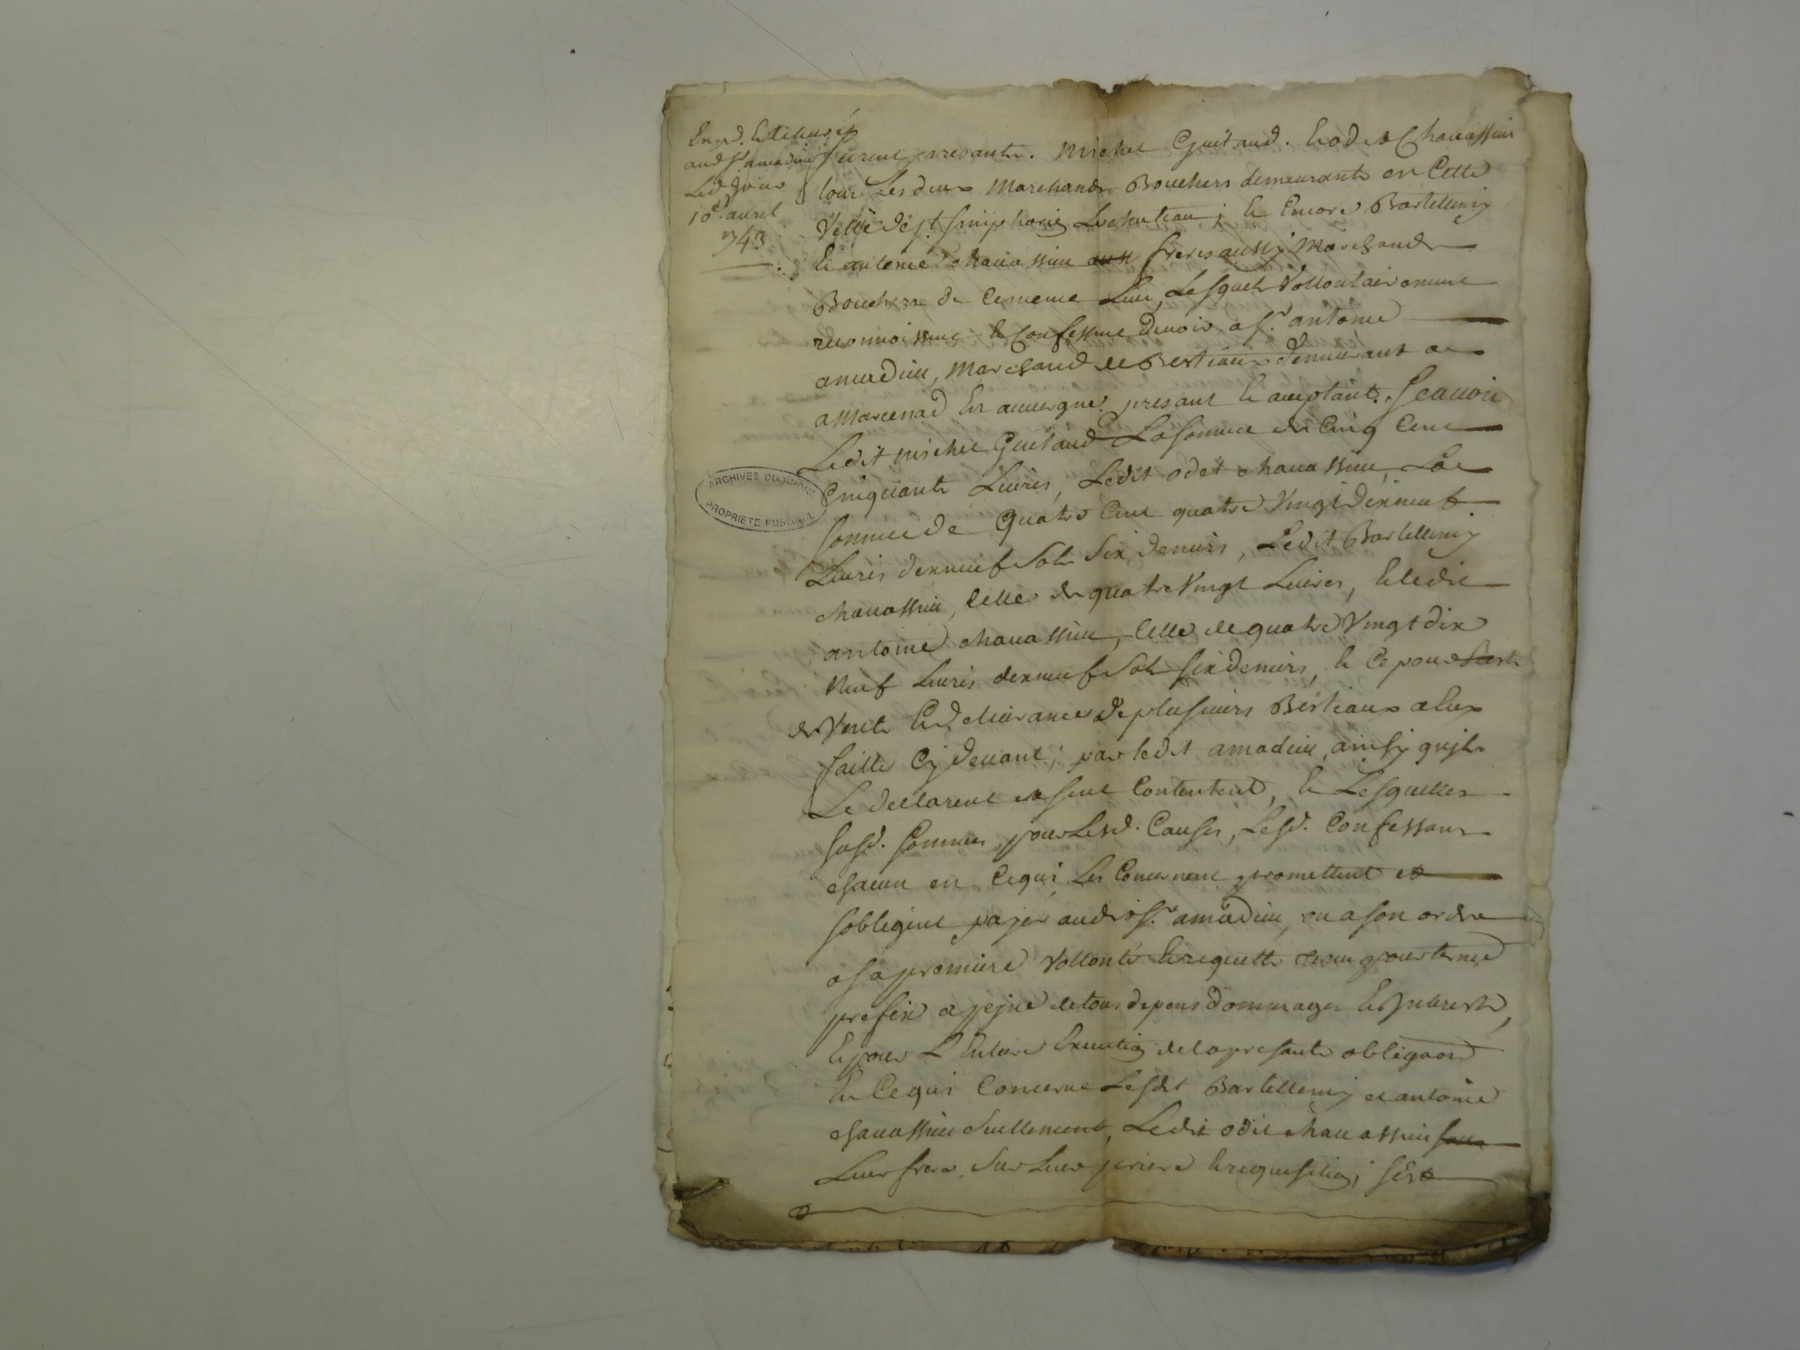 Exp.d. et délivré
aud. Sr. amadieu
Led. jour
10e. avril
743
furent presants. Michel Guitaud. et odet Chavassieu
tous Les deux Marchands Bouchers demeurants en Cette
Ville de st. simphorie Lechateau; et Encore Bartellemy
et antoine Chavassieu freres aussy Marchands
Bouchers de Ce meme Lieu, Lesquels Vollontairement
reconnoissent et Confessent devoir a sr. antoine
amadieu, Marchand de Bestiaux demeurant a
a Marcenad En auvergne presant et aceptant. Scavoir
Ledit michel Guitaud La somme de Cinq Cent
Cinquante Livres, Ledit odet chavassieu, La
somme de Quatre Cent quatre Vingt dixneuf
Livres dixneuf Sols Six deniers, Ledit Bartellemy
chavassieu, Celle de quatre Vingt Livres, et ledit
antoine chavassieu, Celle de quatre Vingt dix
Neuf Livres dixneuf Sols six deniers, et Ce pour
de Vente et delivrance de plusieurs Bestiaux a Eux
faitte Cy devant, par ledit amadieu, ainsy qu'ils
Le declarent et s'en Contentent, et Lesquelles
susd. sommes, pour Lesd. Causes, Lesd. Confessants
chacun en Ce qui Les Concernent promettent et
sobligent payer audit sr. amadieu, ou a son ordre
a sa premiere Vollonté et requette pour terme
prefix a peine de tous depens dommages et Interests,
et pour L'Entiere Execution de la presante obligaon
En Ce qui Concerne Lesdit Bartellemy et antoine
chavassieu seullement, Ledit odet chavassieu
Leur frere. sur Leur priere et requisition, sest
ARCHIVES DU RHONE
PROPRIETE PUBLIQUE